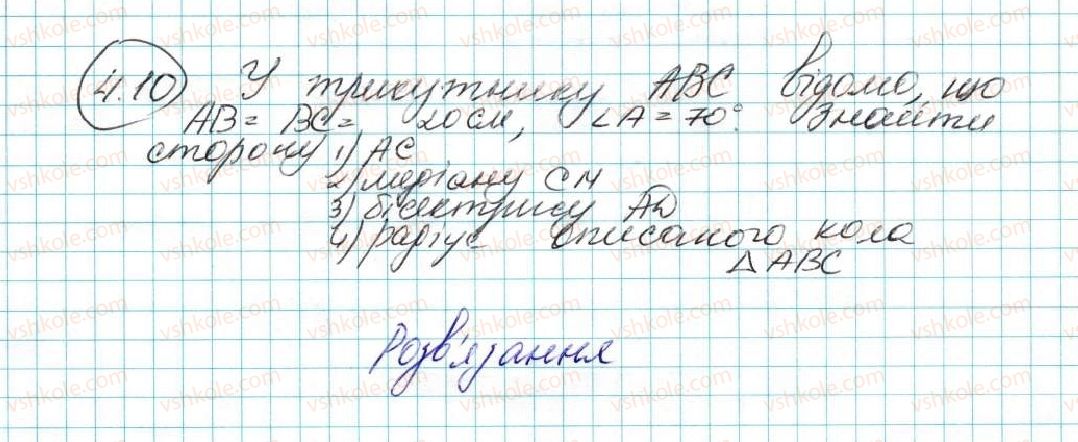 4.10 У трикутнику ABC відомо, що
AB = BC = 20 см, ∠A = 70°. Знайти
сторону 1) AC
2) медіану CM
3) бісектрису AD
4) радіус описаного кола
△ ABC
Розв'язання